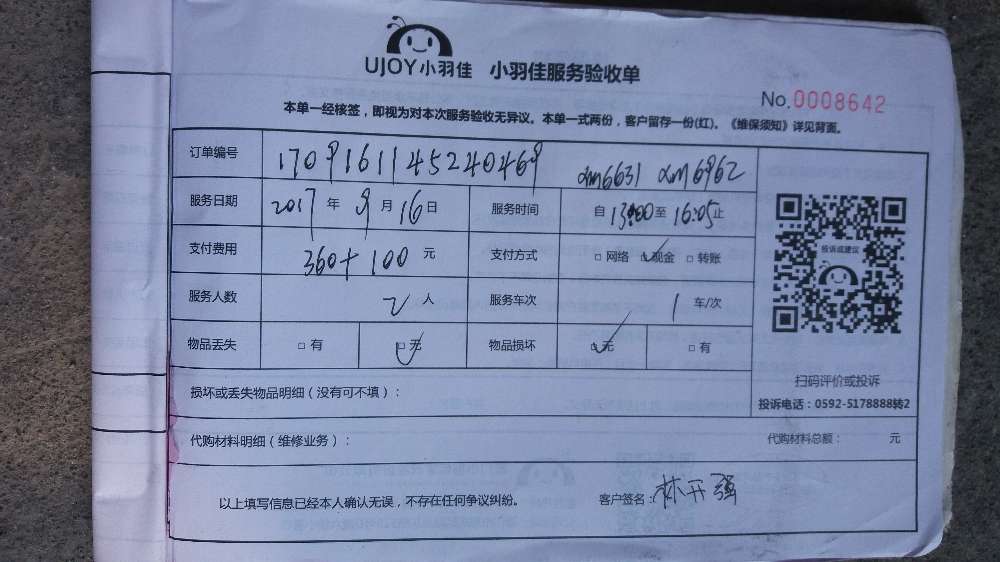 UJOY小羽佳 小羽佳服务验收单
No.0008642
本单一经核签，即视为对本次服务验收无异议。本单一式两份，客户留存一份(红)。《维保须知》详见背面。
订单编号 1709161145240469 xm6631 xm6962
服务日期 2017 年 9 月 16 日 服务时间 自 13:00 至 16:05 止
支付费用 360+100 元 支付方式 □ 网络 ☑ 现金 □ 转账
服务人数 2 人 服务车次 1 车/次
物品丢失 □ 有 ☑ 无 物品损坏 ☑ 无 □ 有
投诉或建议
扫码评价或投诉
投诉电话：0592-5178888转2
损坏或丢失物品明细（没有可不填）：
代购材料明细（维修业务）： 代购材料总额： 元
以上填写信息已经本人确认无误，不存在任何争议纠纷。 客户签名：林开强